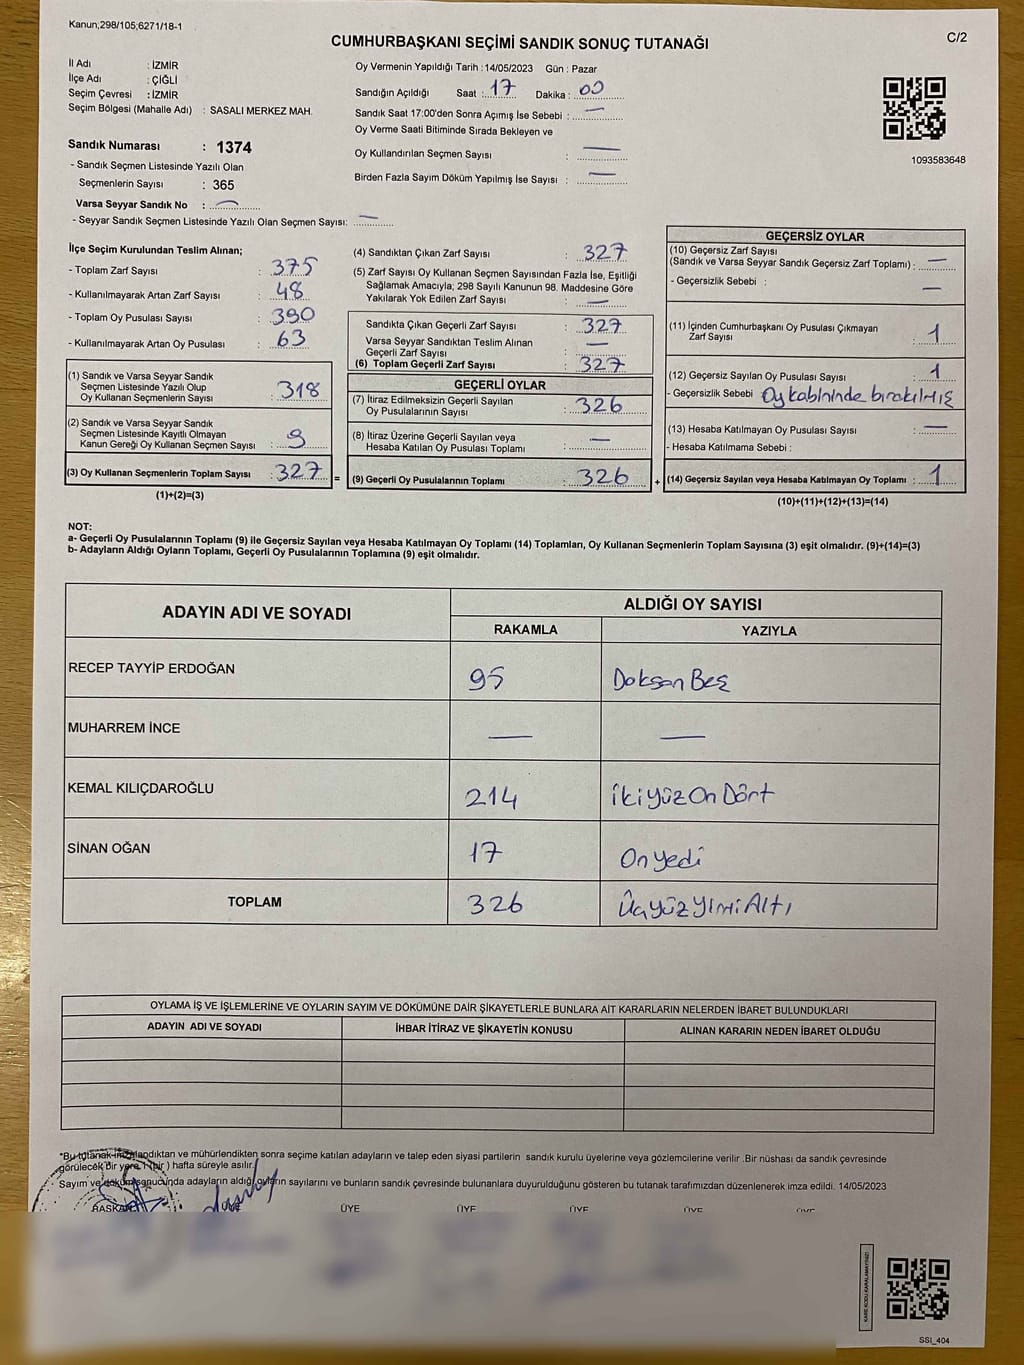 Kanun;298/105;6271/18-1
C/2
CUMHURBAŞKANI SEÇİMİ SANDIK SONUÇ TUTANAĞI
İl Adı : İZMİR
İlçe Adı : ÇİĞLİ
Seçim Çevresi : İZMİR
Seçim Bölgesi (Mahalle Adı) : SASALI MERKEZ MAH.
Sandık Numarası : 1374
- Sandık Seçmen Listesinde Yazılı Olan
Seçmenlerin Sayısı : 365
Varsa Seyyar Sandık No : —
- Seyyar Sandık Seçmen Listesinde Yazılı Olan Seçmen Sayısı: —
Oy Vermenin Yapıldığı Tarih :14/05/2023 Gün : Pazar
Sandığın Açıldığı Saat : 17 Dakika : 00
Sandık Saat 17:00'den Sonra Açımış İse Sebebi : —
Oy Verme Saati Bitiminde Sırada Bekleyen ve
Oy Kullandırılan Seçmen Sayısı : —
Birden Fazla Sayım Döküm Yapılmış İse Sayısı : —
1093583648
İlçe Seçim Kurulundan Teslim Alınan;
- Toplam Zarf Sayısı : 375
- Kullanılmayarak Artan Zarf Sayısı : 48
- Toplam Oy Pusulası Sayısı : 390
- Kullanılmayarak Artan Oy Pusulası : 63
(1) Sandık ve Varsa Seyyar Sandık
Seçmen Listesinde Yazılı Olup
Oy Kullanan Seçmenlerin Sayısı : 318
(2) Sandık ve Varsa Seyyar Sandık
Seçmen Listesinde Kayıtlı Olmayan
Kanun Gereği Oy Kullanan Seçmen Sayısı : 9
(3) Oy Kullanan Seçmenlerin Toplam Sayısı : 327 =
(1)+(2)=(3)
(4) Sandıktan Çıkan Zarf Sayısı : 327
(5) Zarf Sayısı Oy Kullanan Seçmen Sayısından Fazla İse, Eşitliği
Sağlamak Amacıyla; 298 Sayılı Kanunun 98. Maddesine Göre
Yakılarak Yok Edilen Zarf Sayısı : —
Sandıkta Çıkan Geçerli Zarf Sayısı : 327
Varsa Seyyar Sandıktan Teslim Alınan
Geçerli Zarf Sayısı : —
(6) Toplam Geçerli Zarf Sayısı : 327
GEÇERLİ OYLAR
(7) İtiraz Edilmeksizin Geçerli Sayılan
Oy Pusulalarının Sayısı : 326
(8) İtiraz Üzerine Geçerli Sayılan veya
Hesaba Katılan Oy Pusulası Toplamı : —
(9) Geçerli Oy Pusulalarının Toplamı : 326 +
GEÇERSİZ OYLAR
(10) Geçersiz Zarf Sayısı
(Sandık ve Varsa Seyyar Sandık Geçersiz Zarf Toplamı) : —
- Geçersizlik Sebebi : —
(11) İçinden Cumhurbaşkanı Oy Pusulası Çıkmayan
Zarf Sayısı : 1
(12) Geçersiz Sayılan Oy Pusulası Sayısı : 1
- Geçersizlik Sebebi : Oy kabininde bırakılmış
(13) Hesaba Katılmayan Oy Pusulası Sayısı : —
- Hesaba Katılmama Sebebi :
(14) Geçersiz Sayılan veya Hesaba Katılmayan Oy Toplamı : 1
(10)+(11)+(12)+(13)=(14)
NOT:
a- Geçerli Oy Pusulalarının Toplamı (9) ile Geçersiz Sayılan veya Hesaba Katılmayan Oy Toplamı (14) Toplamları, Oy Kullanan Seçmenlerin Toplam Sayısına (3) eşit olmalıdır. (9)+(14)=(3)
b- Adayların Aldığı Oyların Toplamı, Geçerli Oy Pusulalarının Toplamına (9) eşit olmalıdır.
ADAYIN ADI VE SOYADI
ALDIĞI OY SAYISI
RAKAMLA YAZIYLA
RECEP TAYYİP ERDOĞAN 95 Doksan Beş
MUHARREM İNCE — —
KEMAL KILIÇDAROĞLU 214 İkiyüz On Dört
SİNAN OĞAN 17 On yedi
TOPLAM 326 Üçyüz Yirmi Altı
OYLAMA İŞ VE İŞLEMLERİNE VE OYLARIN SAYIM VE DÖKÜMÜNE DAİR ŞİKAYETLERLE BUNLARA AİT KARARLARIN NELERDEN İBARET BULUNDUKLARI
ADAYIN ADI VE SOYADI İHBAR İTİRAZ VE ŞİKAYETİN KONUSU ALINAN KARARIN NEDEN İBARET OLDUĞU
*Bu tutanak imzalandıktan ve mühürlendikten sonra seçime katılan adayların ve talep eden siyasi partilerin sandık kurulu üyelerine veya gözlemcilerine verilir .Bir nüshası da sandık çevresinde
görülecek bir yere 1 (bir ) hafta süreyle asılır.
Sayım ve döküm sonucunda adayların aldığı oyların sayılarını ve bunların sandık çevresinde bulunanlara duyurulduğunu gösteren bu tutanak tarafımızdan düzenlenerek imza edildi. 14/05/2023
BAŞKAN ÜYE ÜYE ÜYE ÜYE ÜYE ÜYE
KARE KODU KARALAMAYINIZ!
SSI_404